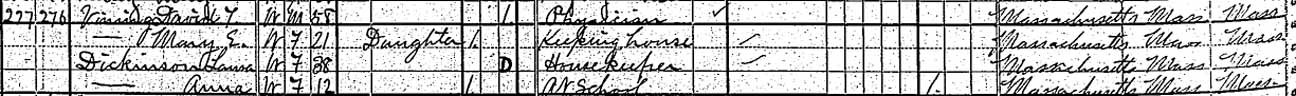 227 276 Vining David T. W M 58 1. Physician ✓ Massachusetts Mass Mass
— Mary E. W F 21 Daughter 1. Keeping house Massachusetts Mass Mass
Dickinson Laura W F 38 D Housekeeper Massachusetts Mass Mass
— Anna W F 12 1. At School 1. Massachusetts Mass Mass